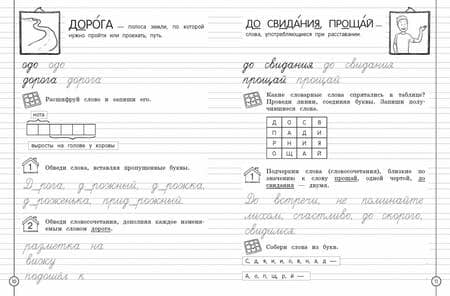 ДОРО́ГА — полоса земли, по которой
нужно пройти или проехать, путь.
одо одо
дорога дорога
Расшифруй слово и запиши его.
нота
выросты на голове у коровы
1 Обведи слова, вставляя пропущенные буквы.
Д_рога, д_рожный, д_рожка,
д_роженька,прид_рожный.
2 Обведи словосочетания, дополняя каждое изменя-
емым словом дорога.
разметка на
вижу
подошёл к
10
ДО СВИДА́НИЯ, ПРОЩА́Й —
слова, употребляющиеся при расставании.
до свидания до свидания
прощай прощай
Какие словарные слова спрятались в таблице?
Проведи линии, соединяя буквы. Запиши полу-
чившиеся слова.
Д О С В
П А Д И
Р Н И Я
О Щ А Й
1 Подчеркни слова (словосочетания), близкие по
значению к слову прощай, одной чертой, до
свидания — двумя.
До встречи, не поминайте
лихом, счастливо, до скорого,
свидимся.
Собери слова из букв.
А, о, п, щ, р, й —
11